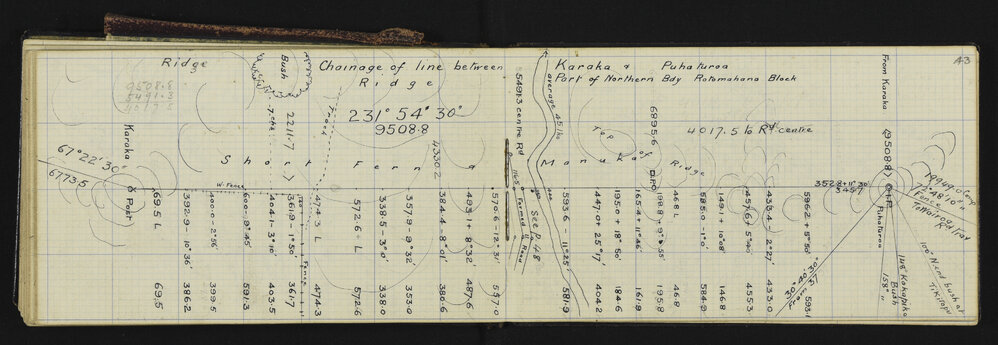 43
Ridge
Bush
Chainage of line between Karaka & Puhaturoa
Ridge
Part of Northern Bdy Rotomahana Block
9508.8
5491.3
4017.5
7 chs
2211.7
Track
231° 54' 30"
9508.8
4330.2
5491.3 centre Rd
average 45 lks
Top of Ridge
6895.6
4017.5 to Rd centre
From Karaka
(9508.8)
67° 22' 30"
6773.5
Karaka
Post
Short Fern & Manuka
W. Fence
Fence
Formed Road
See P. 48
352.8 + 11° 30'
345.7
Puhaturoa
72° 48' 10"
Fence
To Wairoa Rd Trav
100° N. end bush at Tikitapu
148° Kakapiko Bush
158° "
30° 40' 30"
69.5 L
69.5
392.9 - 10° 36'
386.2
400.0 - 2° 56'
399.5
600.0 - 9° 45'
591.3
404.1 - 3° 10'
403.5
361.9 - 1° 50'
361.7
474.3 L
474.3
572.6 L
572.6
338.5 - 3° 0'
338.0
357.9 - 9° 32'
353.0
384.4 - 8° 01'
380.6
493.1 + 8° 32'
487.6
570.6 - 12° 31'
557.0
593.6 - 11° 25'
581.9
447.0 + 25° 17'
404.2
195.0 + 18° 50'
184.6
165.4 + 11° 46'
161.9
198.8 + 9° 55'
195.8
46.8 L
46.8
585.0 - 1° 0'
584.9
149.1 + 10° 08'
146.8
457.6 + 5° 40'
455.3
433.4 - 2° 27'
433.0
596.2 + 5° 50'
593.1